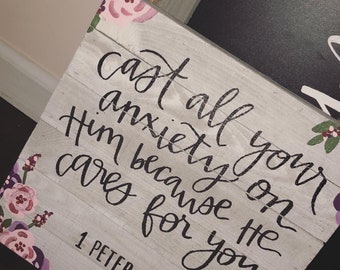 cast all your
anxiety on
Him because He
cares for you
1 PETER